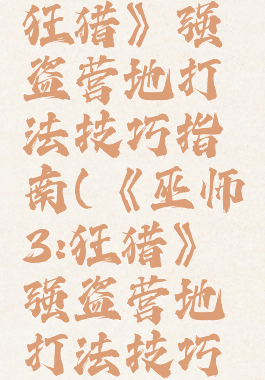 狂猎》强
盗营地打
法技巧指
南(《巫师
3:狂猎》
强盗营地
打法技巧